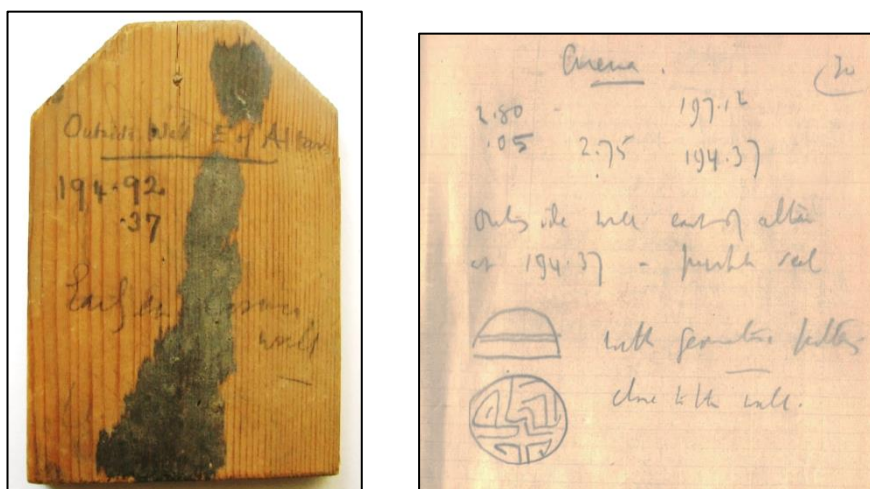 Outside Wall E of Altar
194.92
.37
Early
wall
Arena.
2.80 197.12
.05 2.75 194.37
Outside wall east of altar
at 194.37 - possible seal
with geometric pattern
close to the wall.